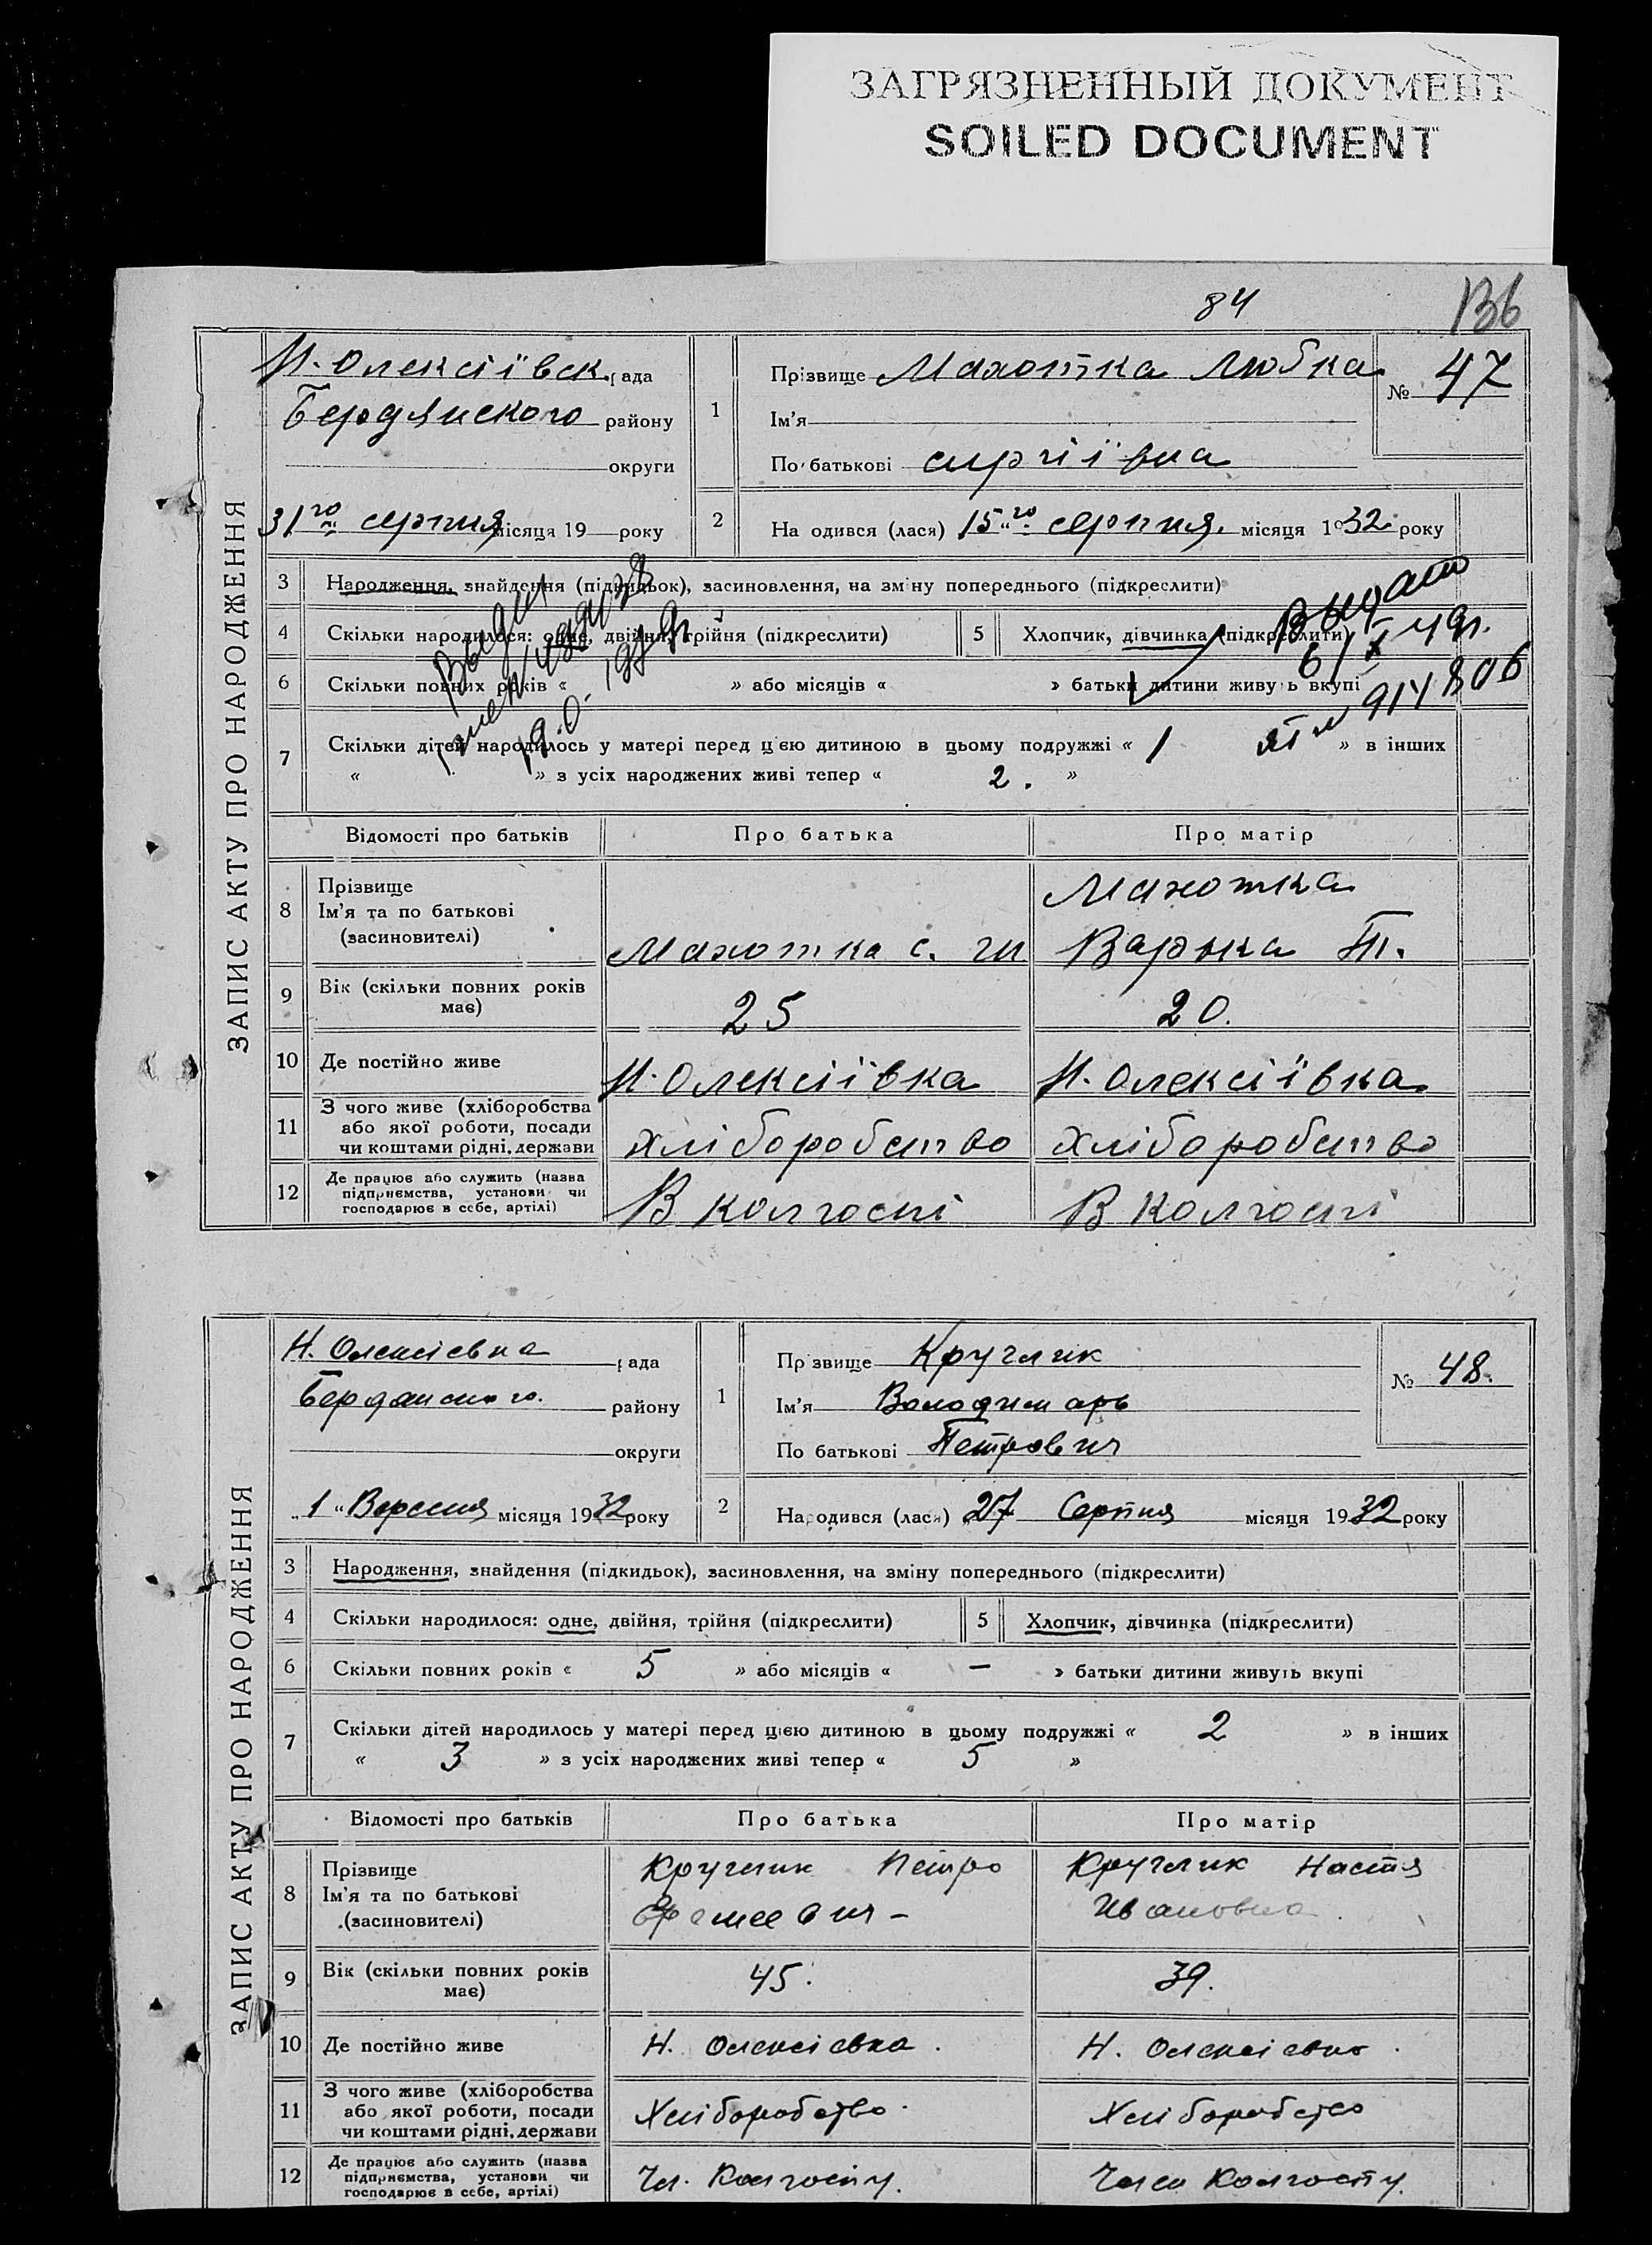 ЗАГРЯЗНЕННЫЙ ДОКУМЕНТ
SOILED DOCUMENT
84
136
ЗАПИС АКТУ ПРО НАРОДЖЕННЯ
Н. Олексіївск. рада
Бердянского району
округи
31го серпня місяця 19 року
1
Прізвище Махотка Любка
Ім'я
По батькові сиргіївна
№ 47
2
На одився (лася) 15го серпня. місяця 1932 року
3 Народження, знайдення (підкидьок), засиновлення, на зміну попереднього (підкреслити)
4 Скільки народилося: одне, двійня, трійня (підкреслити)
5 Хлопчик, дівчинка (підкреслити)
Выдано
6/X 49г.
914806
6 Скільки повних років « » або місяців « » батьки дитини живуть вкупі
7 Скільки дітей народилось у матері перед цією дитиною в цьому подружжі « 1 » в інших
« » з усіх народжених живі тепер « 2. »
Відомості про батьків Про батька Про матір
8 Прізвище
Ім'я та по батькові
(засиновителі)
Махотка с.
Махотка
Варька Т.
9 Вік (скільки повних років
має)
25 20.
10 Де постійно живе Н. Олексіївка Н. Олексіївка
11 З чого живе (хліборобства
або якої роботи, посади
чи коштами рідні, держави
хліборобство хліборобство
12 Де працює або служить (назва
підприємства, установи чи
господарює в себе, артілі)
В колгоспі В колгоспі
ЗАПИС АКТУ ПРО НАРОДЖЕННЯ
Н. Олексієвка рада
Бердянского. району
округи
„1“ Вересня місяця 1932 року
1
Пр звище Круглик
Ім'я Володимарь
По батькові Петрович
№ 48.
2
Народився (лася) 27 Серпня місяця 1932 року
3 Народження, знайдення (підкидьок), засиновлення, на зміну попереднього (підкреслити)
4 Скільки народилося: одне, двійня, трійня (підкреслити)
5 Хлопчик, дівчинка (підкреслити)
6 Скільки повних років « 5 » або місяців « — » батьки дитини живуть вкупі
7 Скільки дітей народилось у матері перед цією дитиною в цьому подружжі « 2 » в інших
« 3 » з усіх народжених живі тепер « 5 »
Відомості про батьків Про батька Про матір
8 Прізвище
Ім'я та по батькові
(засиновителі)
Круглик Петро
Круглик Настя
Ивановна
9 Вік (скільки повних років
має)
45. 39.
10 Де постійно живе Н. Олексієвка. Н. Олексієвка.
11 З чого живе (хліборобства
або якої роботи, посади
чи коштами рідні, держави
Хліборобство. Хліборобство
12 Де працює або служить (назва
підприємства, установи чи
господарює в себе, артілі)
Чл. Колгоспу. Член Колгоспу.